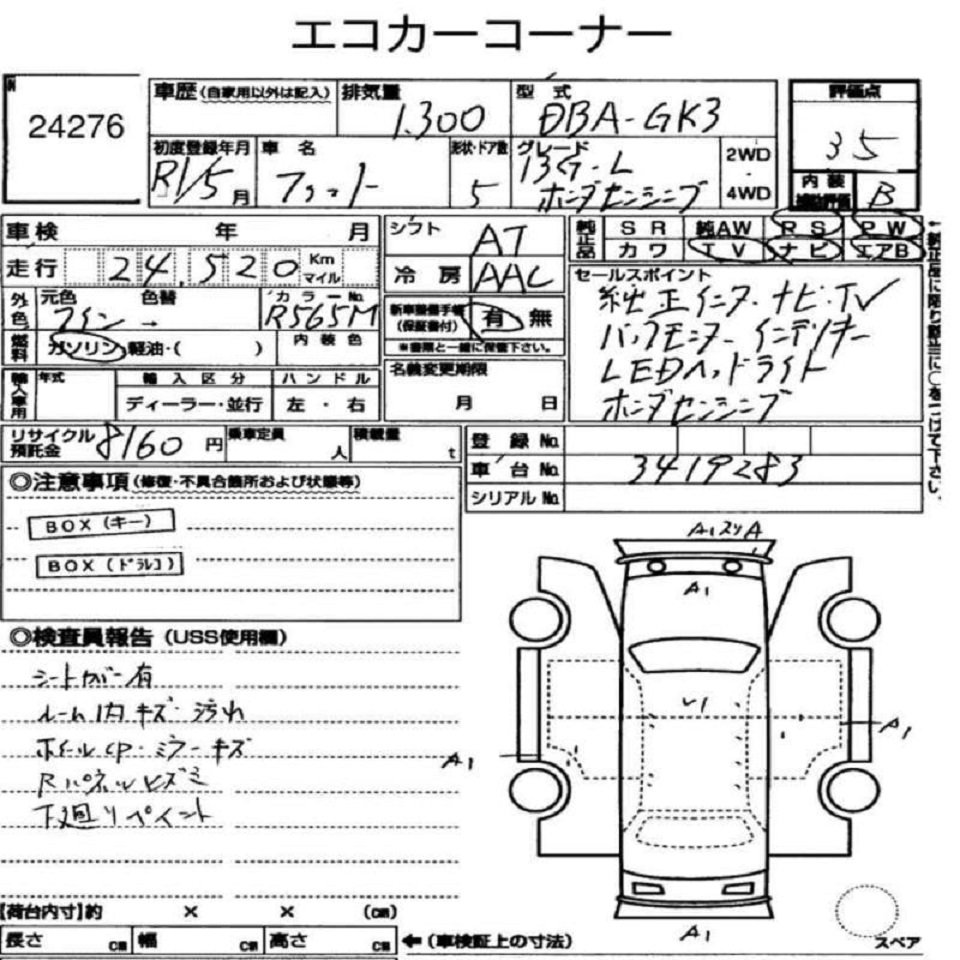 エコカーコーナー
24276
車歴 (自家用以外は記入) 排気量 型式 評価点
1.300 DBA-GK3 35
初度登録年月 車名 形状・ドア数 グレード 2WD・4WD 内装
R1/5月 フィット 5 13G-L B
ホンダセンシング
車検 年 月
シフト AT
純正品 SR 純AW RS PW
カワ TV ナビ エアB
走行 24,520 Km マイル
冷房 AAC
外色 元色 色替 カラーNo.
ワイン → R565M
燃料 ガソリン・軽油・( ) 内装色
新車整備手帳 (保証書付) 有 無
※書類と一緒に保管下さい。
セールスポイント
純正インタ・ナビ・TV
バックモニター インテリキー
LEDヘッドライト
ホンダセンシング
輸入車用 年式 輸入区分 ハンドル
ディーラー・並行 左・右
名義変更期限
月 日
リサイクル預託金 8160円 乗車定員 人 積載量 t
登録 No.
車台 No. 3419283
シリアル No.
◎注意事項 (修復・不具合箇所および状態等)
BOX(キー)
BOX(ドラレコ)
◎検査員報告 (USS使用欄)
シートカバー有
ルーム内キズ・汚れ
ホイールCP・ミラーキズ
Rパネルヒズミ
下廻リペイント
A1スリA
A1
U1
A1
A1
A1
スペア
【荷台内寸】約 × × (cm)
長さ cm 幅 cm 高さ cm ←(車検証上の寸法)